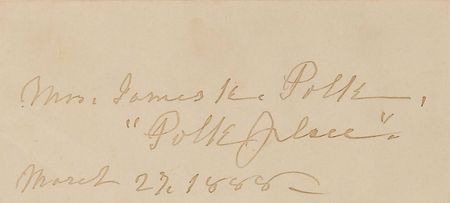 Mrs. James K. Polk,
"Polk Place".
March 27, 1888